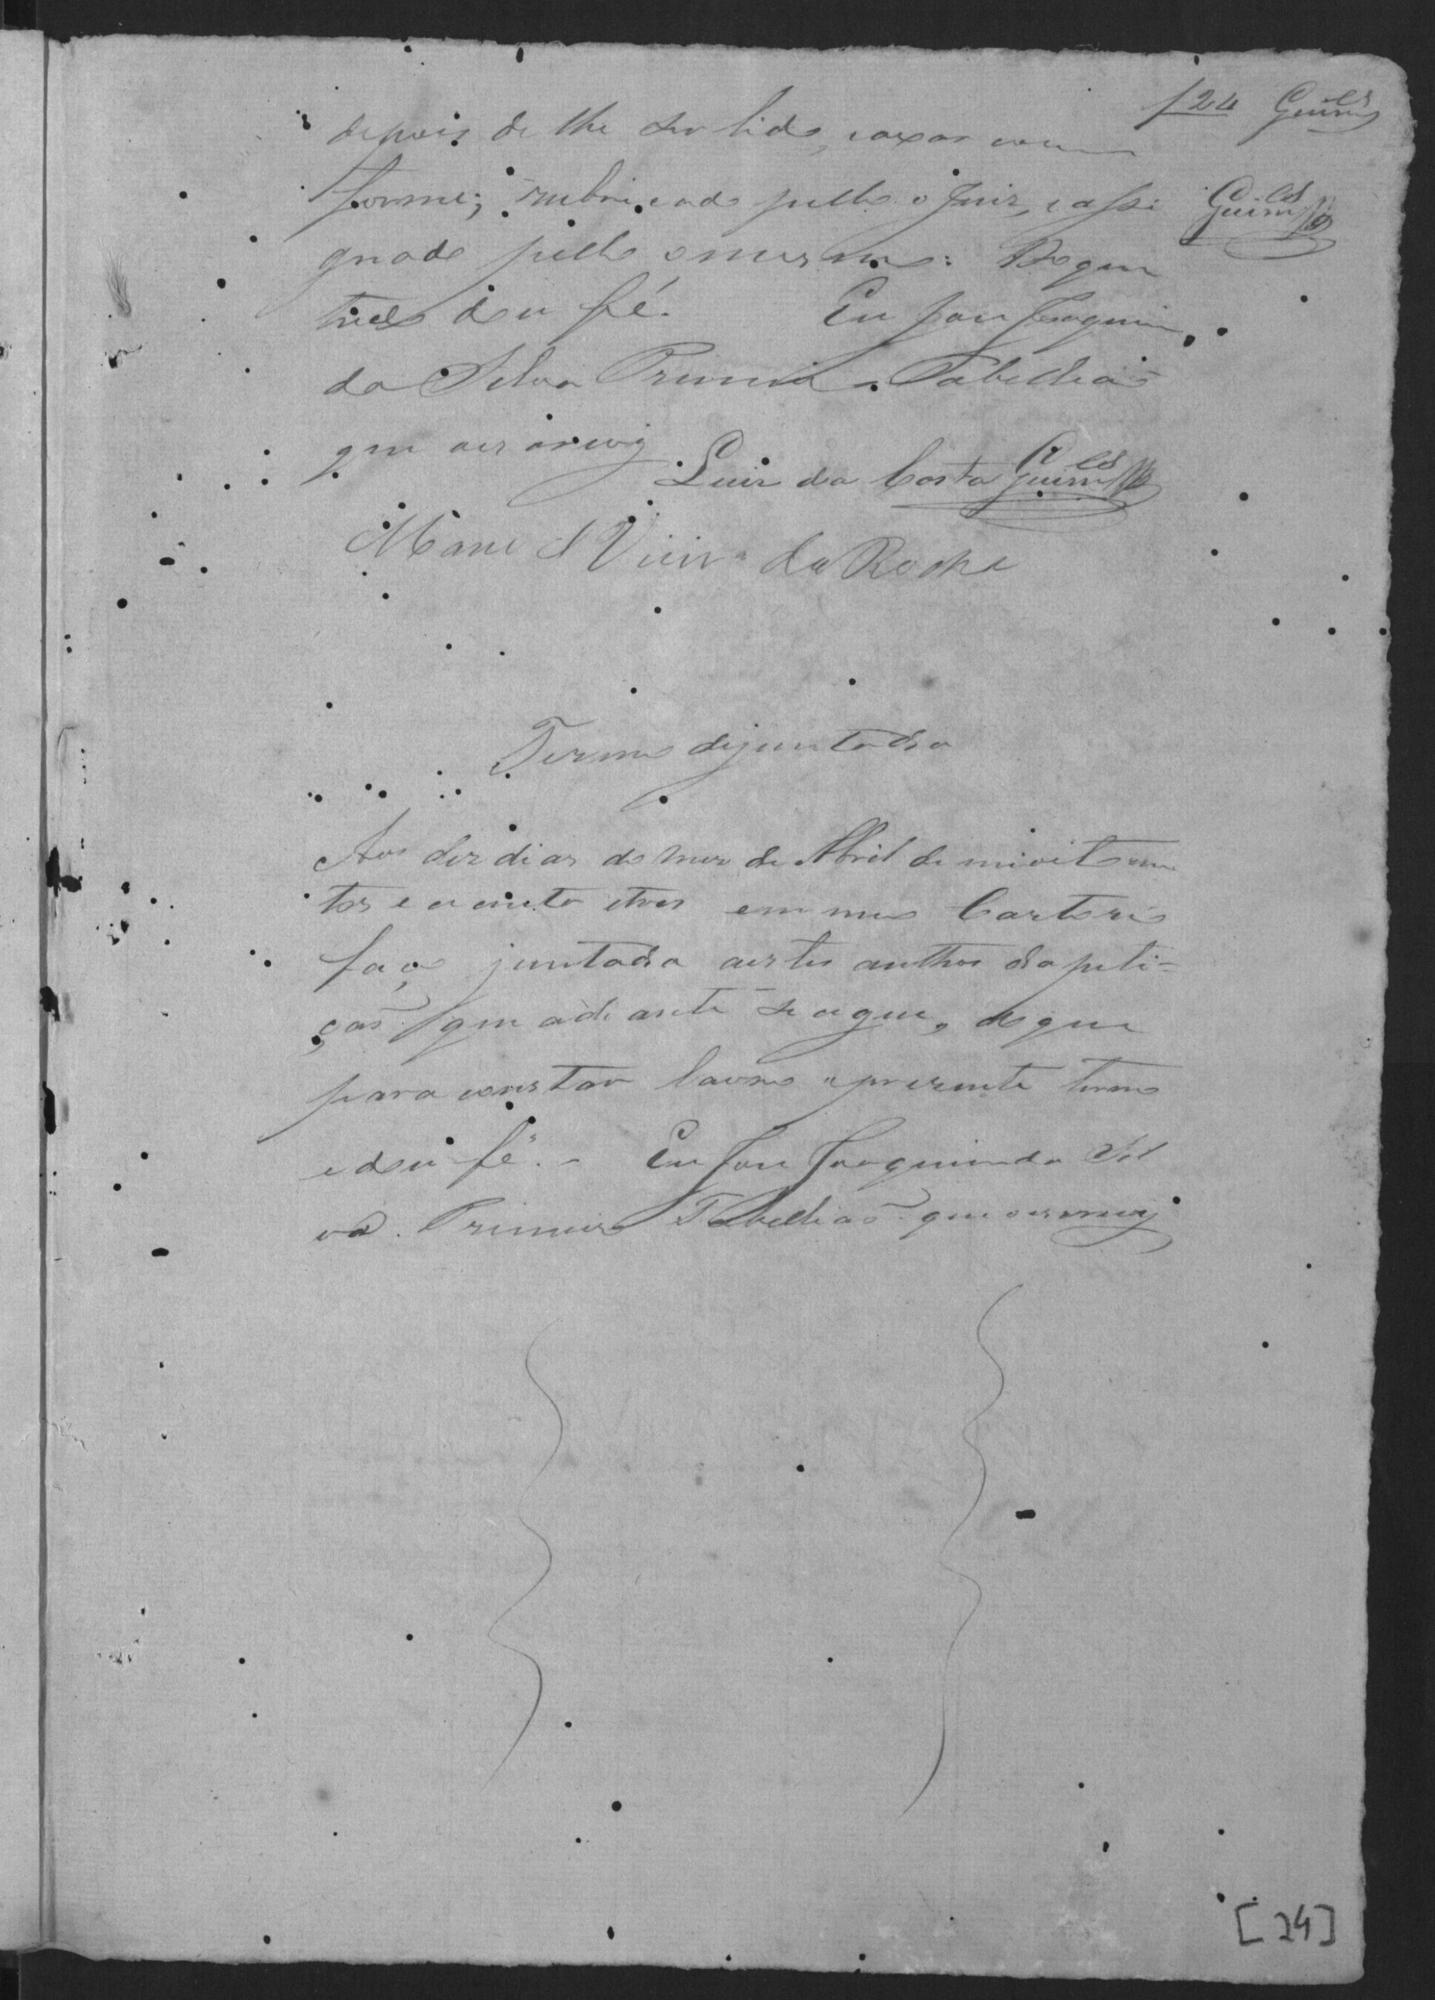 f 24 Guim.es
depois de lhe ser lido, e axar con
forme; rubricado pello o Juiz, e assi Guim.es
gnado pello o mesmo: Do que
tudo dou fé. Eu José Joaquim
da Silva Primeiro Tabellião
que o escrevy
Luiz da Costa Guim.es
Manoel Vieira da Rocha
Termo dejuntada
Aos dez dias do mez de Abril de mil oito cen
tos e oitenta e tres em meu Cartorio
faço juntada a estes authos da peti=
ção que adiante se segue, do que
para constar lavro o presente termo
e dou fé. - Eu José Joaquim da Sil
va. Primeiro Tabellião que o escrevy
[24]